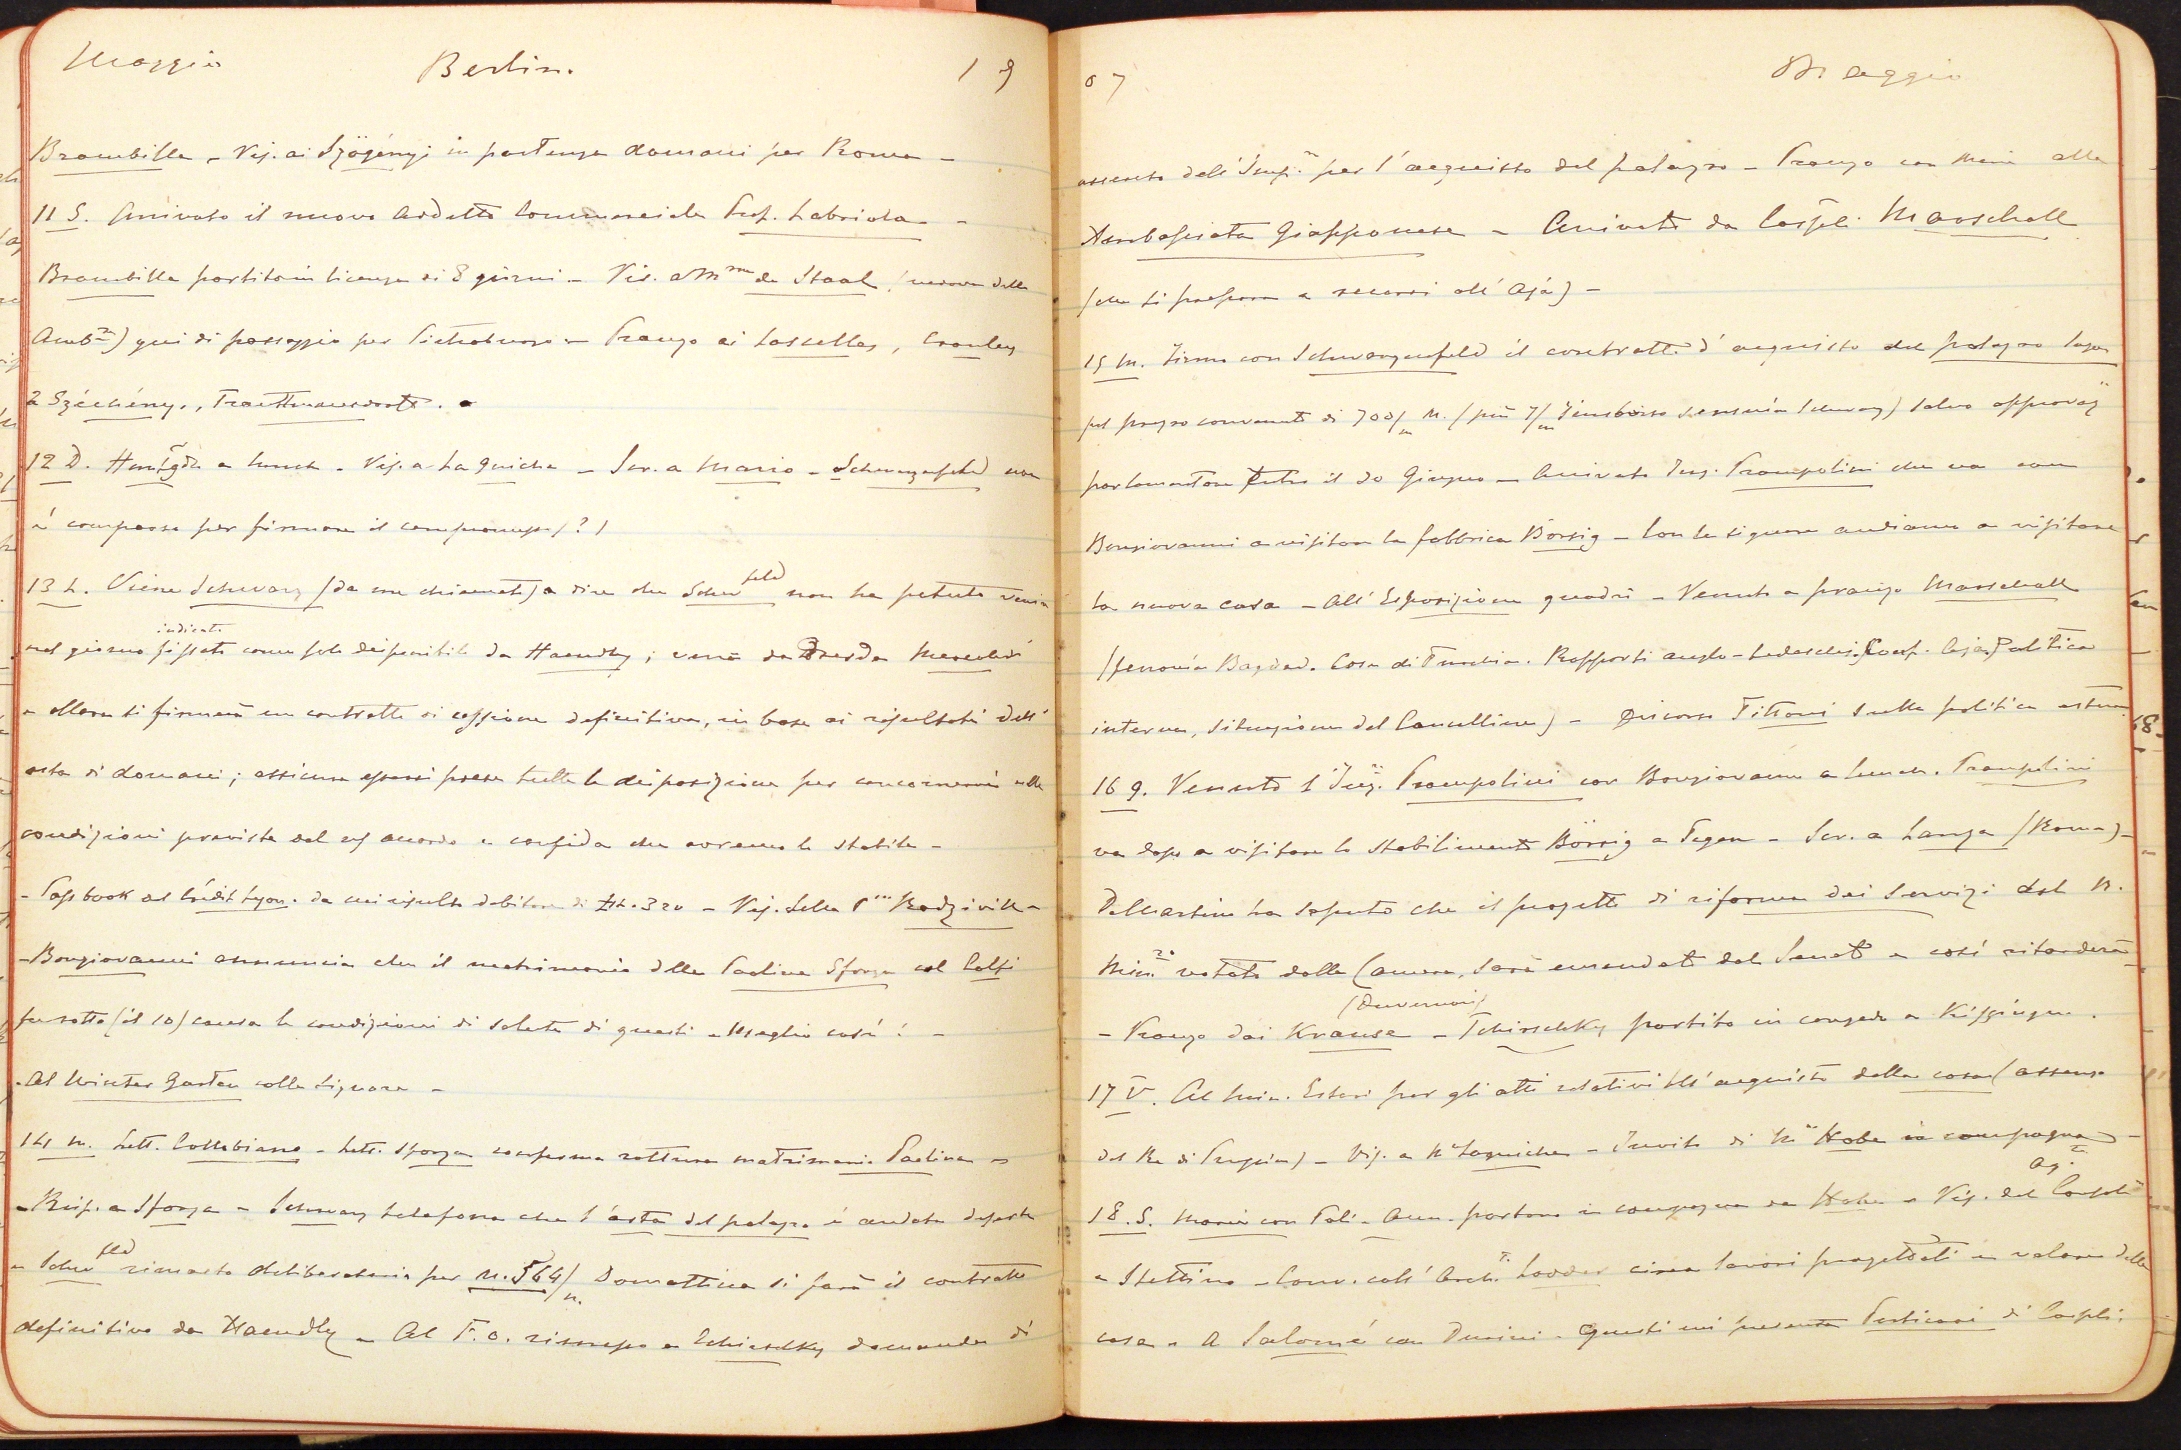 Maggio Berlin. 19
Brambilla - Vis. ai Szögényi in partenza domani per Roma -
11 S. Arrivato il nuovo Addetto Commerciale Prof. Labriola -
Brambilla partito in licenza di 8 giorni - Vis. a Mme de Staal (vedova dello
Ambre) qui di passaggio per Pietroburgo - Pranzo ai Lascelles, Cranley
2 Széchény, Trauttmansdorff.
12 D. a lunch - Vis. a Laguiche - Scr. a Mario - Schwarzenfeld non
è comparso per firmare il compromesso (?)
13 L. Viene Schwarz (da me chiamato) a dire che Schwfeld non ha potuto venire
nel giorno fissato indicato come solo disponibile da Haendly; verrà da Dresda Mercoledì
e allora si firmerà un contratto di cessione definitiva, in base ai risultati dell'
asta di domani; assicura essersi prese tutte le disposizioni per concorrervi alle
condizioni previste dal accordo e confida che avremo lo stabile -
- Pass book del Crédit Lyon. da cui risulto debitore di 320 - Vis. della Pssa Radziwill -
- Bongiovanni annuncia che il matrimonio della Paolina Sforza col Colfi
fu rotto (il 10) causa le condizioni di salute di questi - Meglio così! -
- Al Winter Garten colle signore -
14 M. Lett. Collobiano - Lett. Sforza conferma rottura matrimonio Paolina -
- Risp. a Sforza - Schwarz telefona che l'asta del palazzo è andata deserta
e Schwfeld rimasto deliberatario per M. 564/m. Domattina si farà il contratto
definitivo da Haendly - Al F.O. rimesso a Tchirschky domanda di
07 Maggio
assenso dell'Impre per l'acquisto del palazzo - Pranzo con Maria alla
Ambasciata Giapponese - Arrivato da Cospli Marschall
(che si prepara a recarsi all'Aja) -
15 M. Firmo con Schwarzenfeld il contratto d'acquisto del palazzo
pel prezzo convenuto di 700/m M. (più 7/m rimborso senseria Schwarz) salvo approvaz
parlamentare entro il 30 Giugno - Arrivato Ing. Prampolini che va con
Bongiovanni a visitar la fabbrica Börsig - Con le signore andiamo a visitare
la nuova casa - All'Esposizione quadri - Venuto a pranzo Marschall
(ferrovia Bagdad. Cose di Turchia. Rapporti anglo-tedeschi. Conf. Aja. Politica
interna, situazione del Cancelliere) - Discorso Tittoni sulla politica estera
16 G. Venuto l'Ing. Prampolini con Bongiovanni a lunch. Prampolini
va dopo a visitare lo stabilimento Börsig a Tegen - Scr. a Lanza (Roma) -
DeMartino ha saputo che il progetto di riforma dei Servizi del N.
Minro votato dalla Camera, sarà emendato dal Senato e così ritarderà
(Duvernoi)
- Pranzo dai Krause - Tchirschky partito in congedo a Kissingen.
17 V. Al Min. Esteri per gli atti relativi all'acquisto della casa (assenso
del Re di Prussia) - Vis. a Laguiche - Invito di Hohe in campagna -
18. S. Maria con Poli - partono in campagna da Hohe - Vis. del Ag.
a Stettino - Conv. coll'Arch. circa lavori progettati e valore della
casa - A Salomé con Durini - Questi mi presenta Perticari di Cospli.